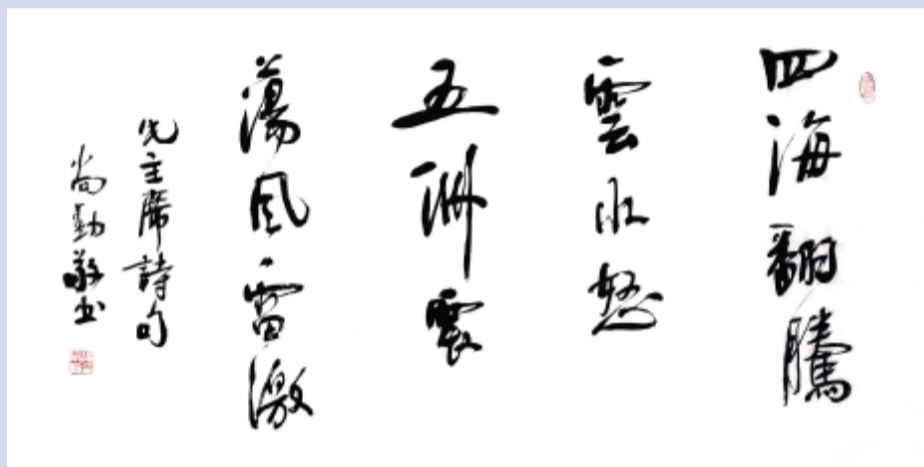 四海翻騰
雲水怒
五洲震
蕩風雷激
毛主席詩句
尚勤敬书